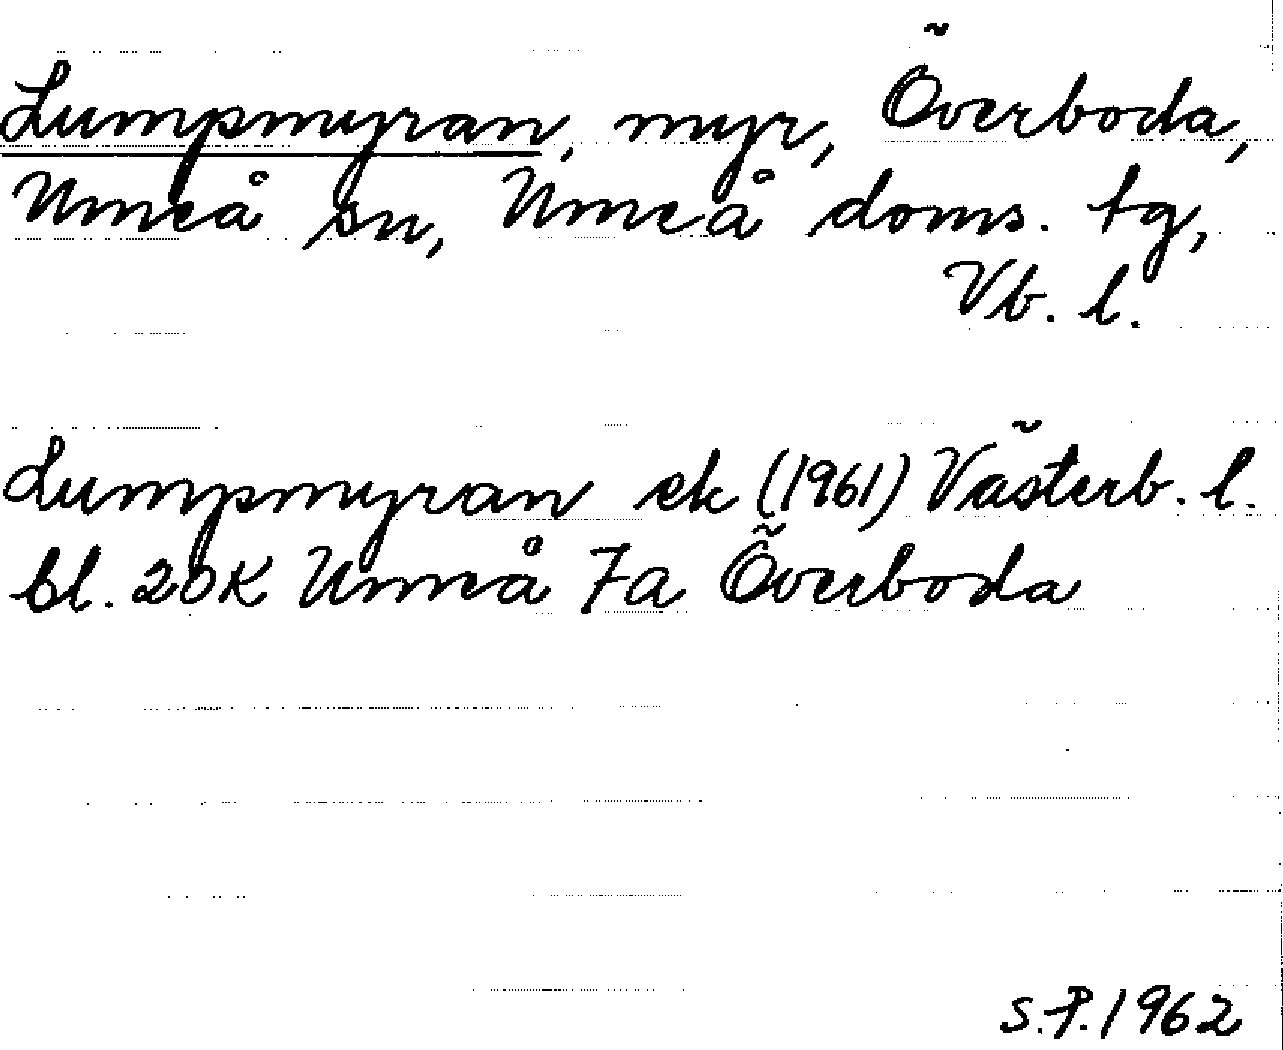 Lumpmyran, myr, Överboda,
Umeå sn, Umeå doms. tg,
Vb. l.
Lumpmyran ek (1961) Västerb. l.
bl. 20K Umeå 7a Överboda
S.P. 1962